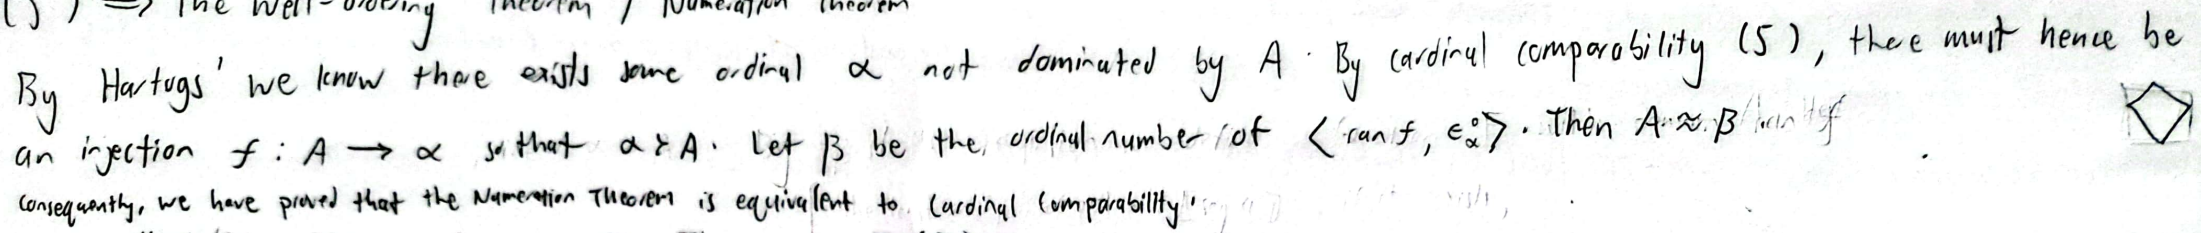 (5) ⟹ The Well-Ordering Theorem / Numeration Theorem
By Hartogs' we know there exists some ordinal α not dominated by A. By cardinal comparability (5), there must hence be
an injection f : A → α so that α ≽ A. Let β be the ordinal number of ⟨ran f, ∈°α⟩. Then A ≈ β
consequently, we have proved that the Numeration Theorem is equivalent to Cardinal Comparability.